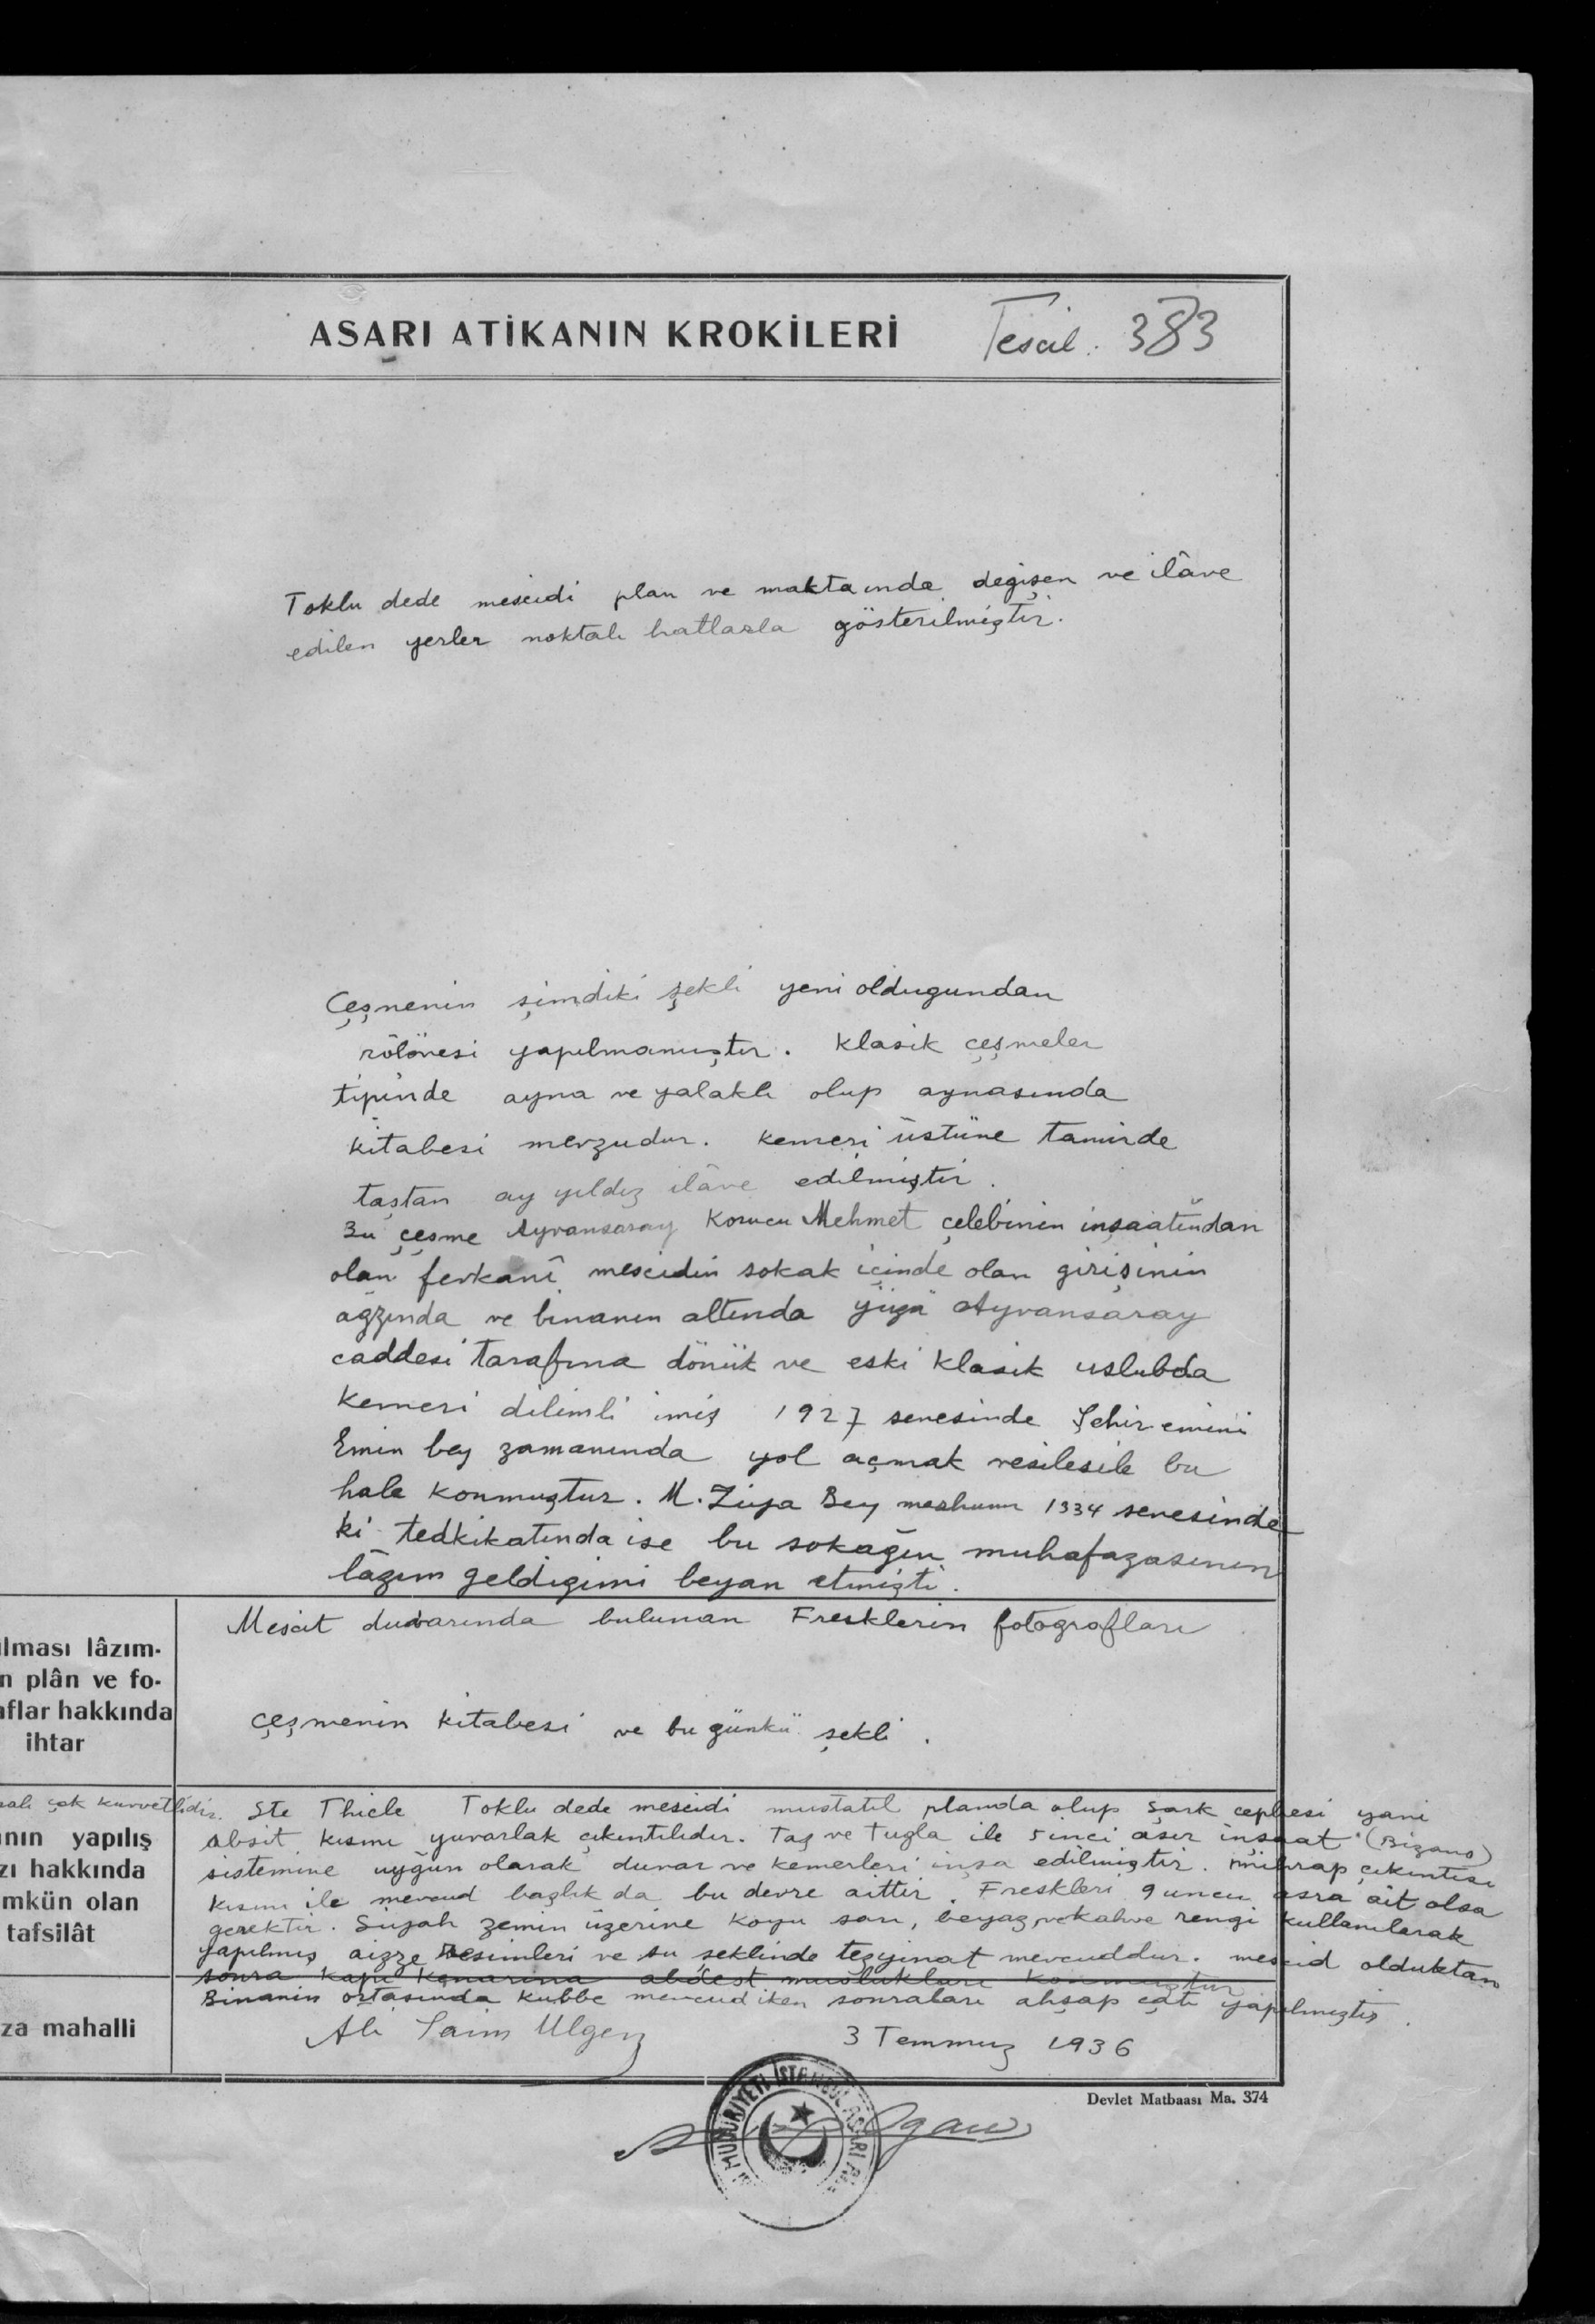 ASARI ATİKANIN KROKİLERİ
Tescil. 383
Toklu dede mescidi plan ve maktaında değişen ve ilâve
edilen yerler noktalı hatlarla gösterilmiştir.
Çeşmenin şimdiki şekli yeni oldugundan
rölövesi yapılmamıştır. Klasik çeşmeler
tipinde ayna ve yalaklı olup aynasında
kitabesi mevzudur. kemeri üstüne tamirde
taştan ay yıldız ilâve edilmiştir.
Bu çeşme Ayvansaray Korucu Mehmet çelebinin inşaatından
olan fevkanî mescidin sokak içinde olan girişinin
ağzında ve binanın altında yüzü Ayvansaray
caddesi tarafına dönük ve eski klasik uslubda
kemeri dilimli imiş 1927 senesinde Şehir emini
Emin bey zamanında yol açmak vesilesile bu
hale konmuştur. M. Ziya Bey merhum 1334 senesinde
ki tedkikatında ise bu sokağın muhafazasının
lâzım geldiğini beyan etmişti.
ılması lâzım-
n plân ve fo-
aflar hakkında
ihtar
Mescit duvarında bulunan Fresklerin fotografları
çeşmenin kitabesi ve bu günkü şekli.
çok kuvvetlidir. Ste Thicle Toklu dede mescidi mustatil planda olup Şark cephesi yani
absit kısmı yuvarlak çıkıntılıdır. Taş ve tugla ile 5 inci asır inşaat (Bizans)
sistemine uygun olarak duvar ve kemerleri inşa edilmiştir. mihrap çıkıntısı
kısmı ile mevcud başlık da bu devre aittir. Freskleri 9 uncu asra ait olsa
gerektir. Siyah zemin üzerine koyu sarı, beyaz, ve kahve rengi kullanılarak
yapılmış aizze resimleri ve su şeklinde tezyinat mevcuddur. mescid olduktan
sonra kapu kenarına abdest muslukları konmuştur
Binanin ortasında kubbe mevcud iken sonraları ahşap çatı yapılmıştır.
ının yapılış
zı hakkında
mkün olan
tafsilât
za mahalli
Ali Saim Ulgen
3 Temmuz 1936
Devlet Matbaası Ma. 374
Ogan